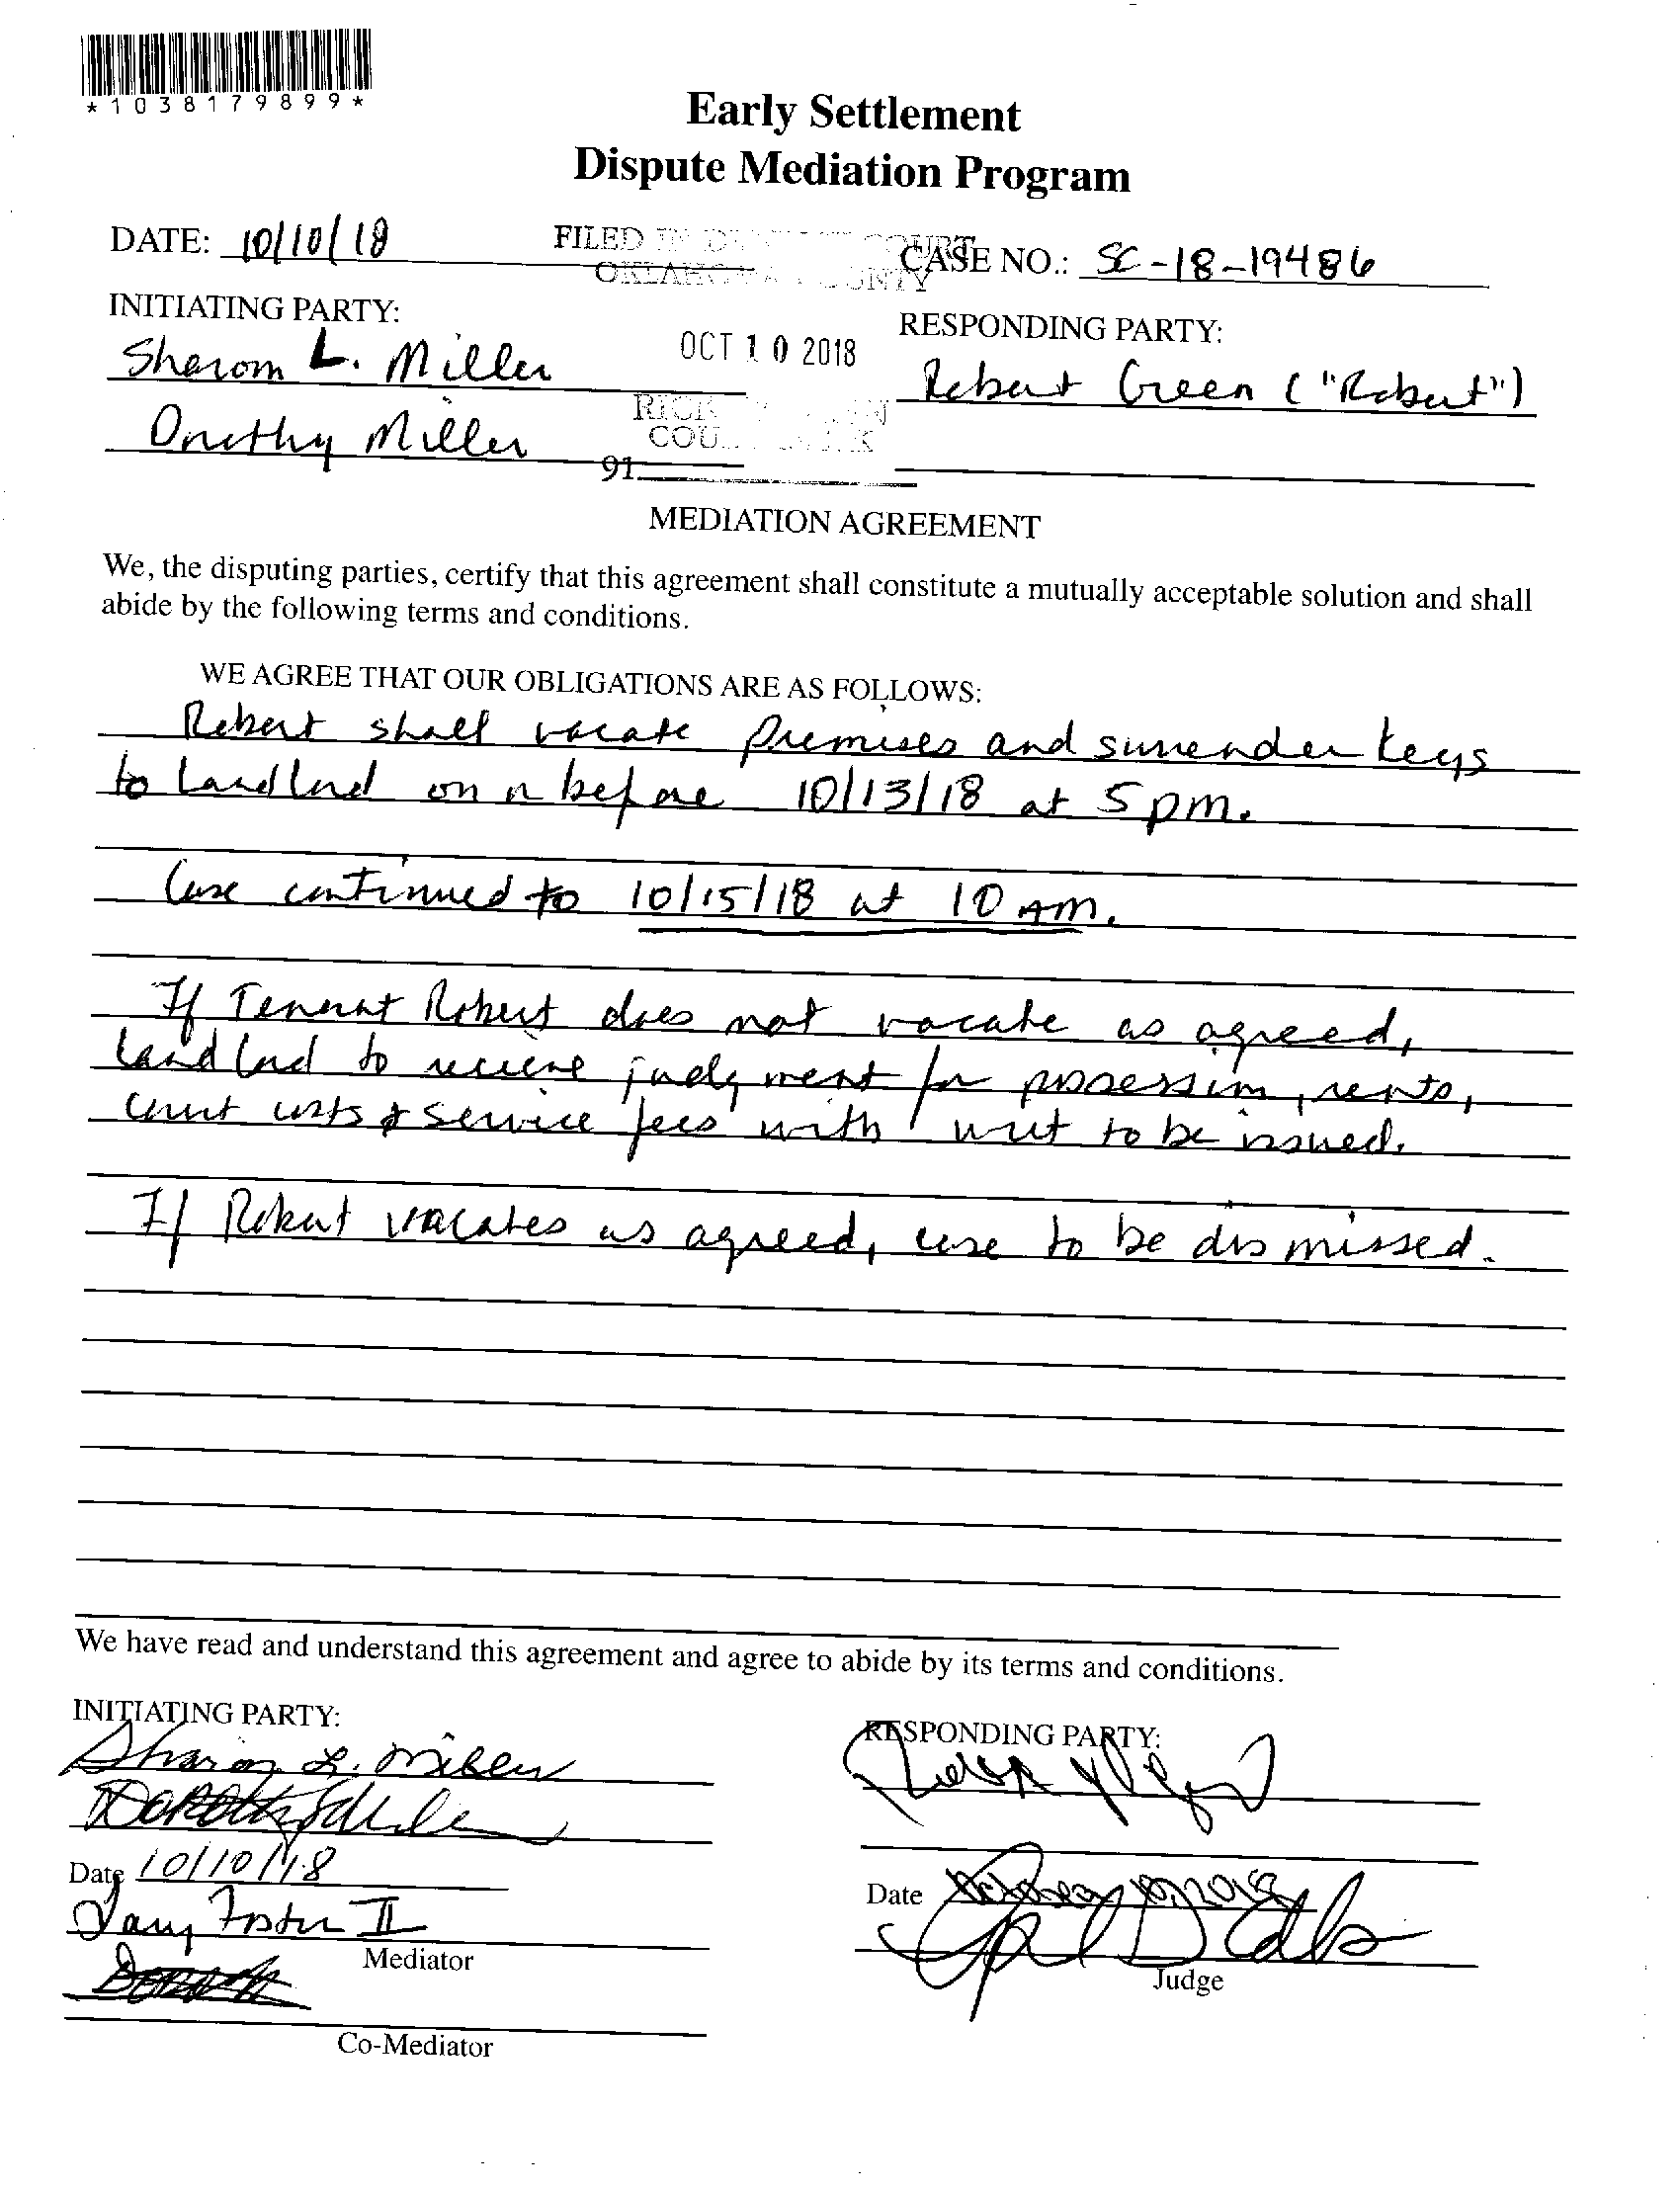 *1038179899*
Early Settlement
Dispute Mediation Program
DATE: 10/10/18
FILED IN COURT
OKLAHOMA COUNTY
CASE NO.: SC-18-19486
INITIATING PARTY:
RESPONDING PARTY:
OCT 10 2018
Sharom L. Miller
Robert Green ("Robert")
RICK
COU
Dorothy Miller
91
MEDIATION AGREEMENT
We, the disputing parties, certify that this agreement shall constitute a mutually acceptable solution and shall
abide by the following terms and conditions.
WE AGREE THAT OUR OBLIGATIONS ARE AS FOLLOWS:
Robert shall vacate premises and surrender keys
to Landlord on or before 10/13/18 at 5 pm.
Case continued to 10/15/18 at 10 AM.
If Tenant Robert does not vacate as agreed,
Landlord to receive judgment for possession, rents,
court costs & service fees with writ to be issued.
If Robert vacates as agreed, case to be dismissed.
We have read and understand this agreement and agree to abide by its terms and conditions.
INITIATING PARTY:
RESPONDING PARTY:
Sharon L. Miller
Date 10/10/18
Date
Foster II
Mediator
Judge
Co-Mediator